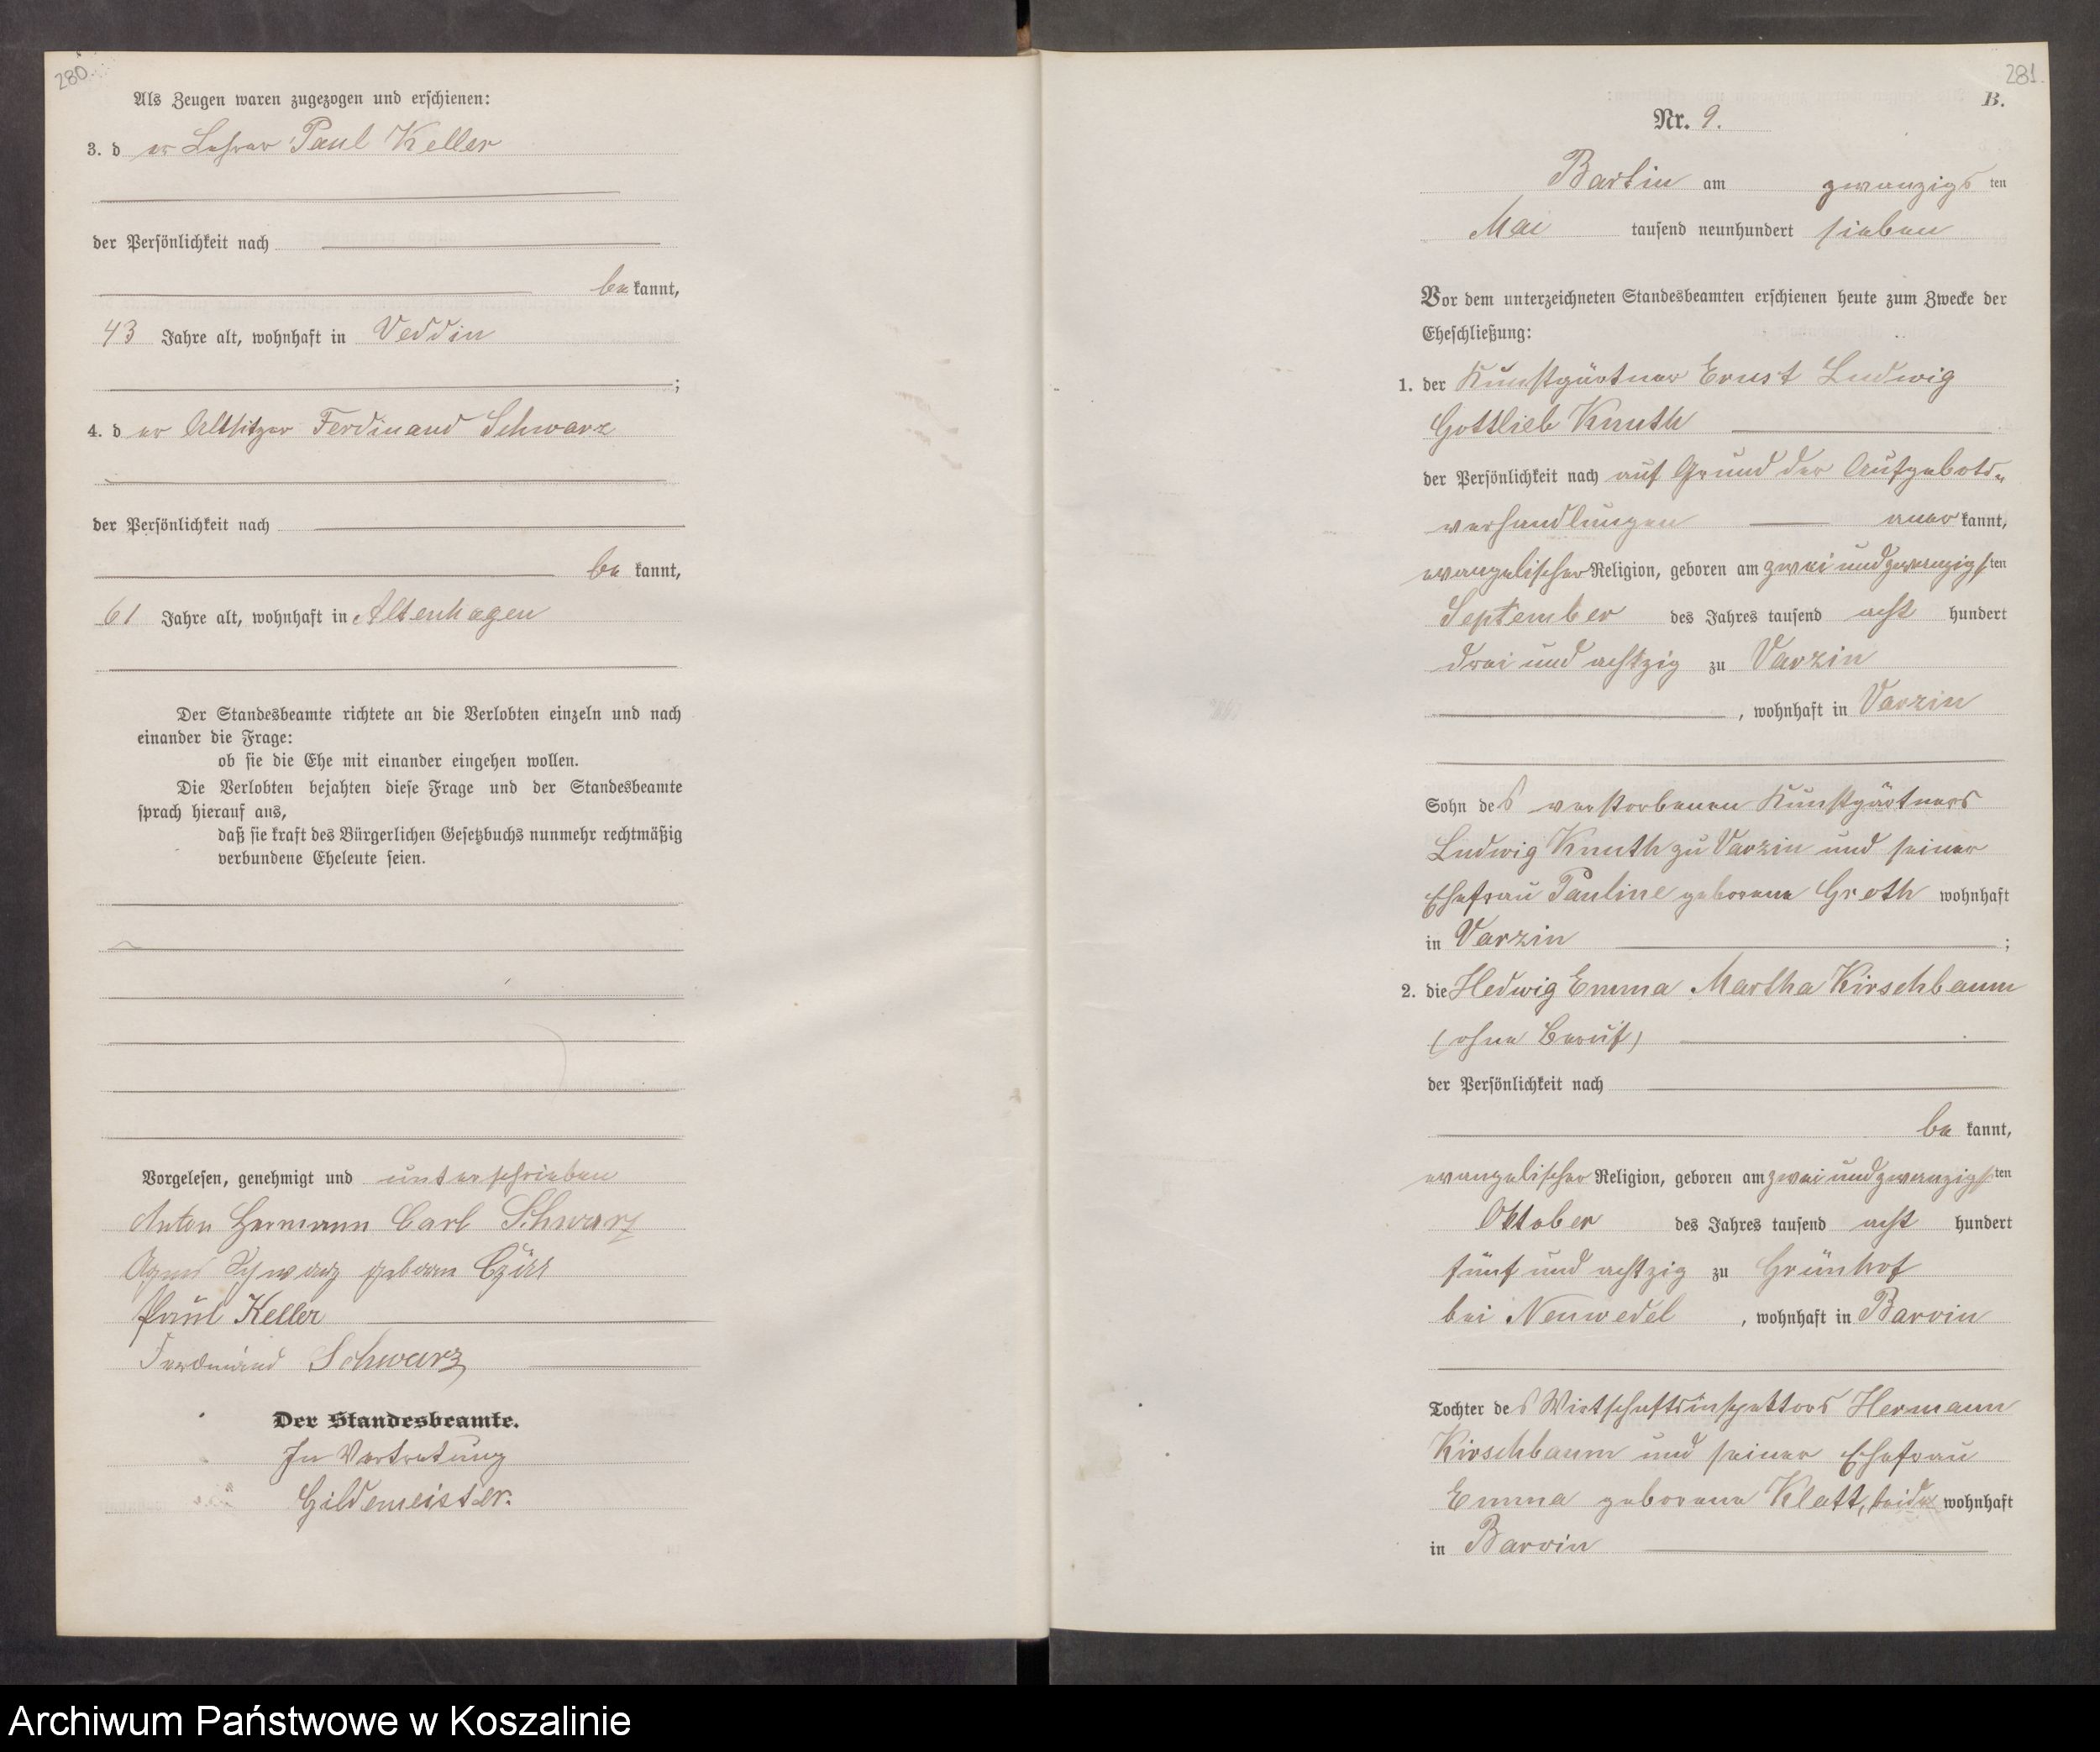 280.
Als Zeugen waren zugezogen und erschienen:
3. der Lehrer Paul Keller
der Persönlichkeit nach
bekannt,
43 Jahre alt, wohnhaft in Veddin
;
4. der Altsitzer Ferdinand Schwarz
der Persönlichkeit nach
bekannt,
61 Jahre alt, wohnhaft in Altenhagen
Der Standesbeamte richtete an die Verlobten einzeln und nach
einander die Frage:
ob sie die Ehe mit einander eingehen wollen.
Die Verlobten bejahten diese Frage und der Standesbeamte
sprach hierauf aus,
daß sie kraft des Bürgerlichen Gesetzbuchs nunmehr rechtmäßig
verbundene Eheleute seien.
Vorgelesen, genehmigt und unterschrieben
Anton Hermann Carl Schwarz
Agnes Schwarz geboren
Paul Keller
Ferdinand Schwarz
Der Standesbeamte.
In Vertretung
Gildemeister.
281.
B.
Nr. 9.
Bartin am zwanzigsten
Mai tausend neunhundert sieben
Vor dem unterzeichneten Standesbeamten erschienen heute zum Zwecke der
Eheschließung:
1. der Kunstgärtner Ernst Ludwig
Gottlieb Knuth
der Persönlichkeit nach auf Grund der Aufgebots-
verhandlungen anerkannt,
evangelischer Religion, geboren am zwei und zwanzigsten
September des Jahres tausend acht hundert
drei und achtzig zu Varzin
, wohnhaft in Varzin
Sohn des verstorbenen Kunstgärtners
Ludwig Knuth zu Varzin und seiner
Ehefrau Pauline geborene Groth wohnhaft
in Varzin ;
2. die Hedwig Emma Martha Kirschbaum
(ohne Beruf)
der Persönlichkeit nach
bekannt,
evangelischer Religion, geboren am zwei und zwanzigsten
Oktober des Jahres tausend acht hundert
fünf und achtzig zu Grünhof
bei Neuwedel , wohnhaft in Barvin
Tochter des Wirtschaftsinspektors Hermann
Kirschbaum und seiner Ehefrau
Emma geborene Klatt, beide wohnhaft
in Barvin
Archiwum Państwowe w Koszalinie